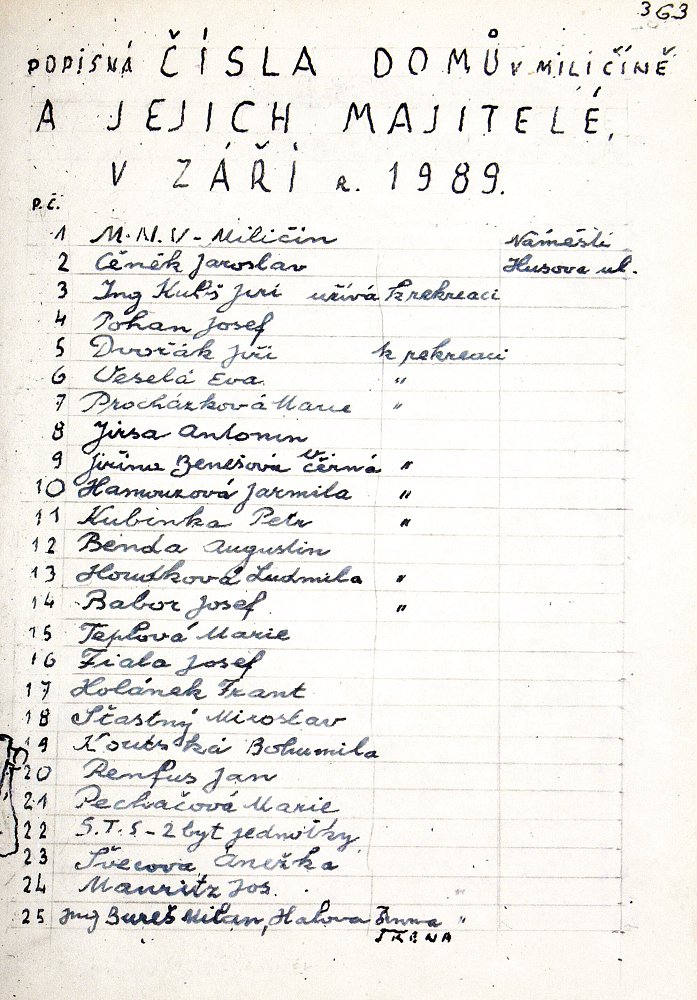 363
POPISNÁ ČÍSLA DOMŮ V MILIČÍNĚ
A JEJICH MAJITELÉ,
V ZÁŘÍ R. 1989.
P.Č.
1 M.N.V - Miličín Náměstí
2 Čeněk Jaroslav Husova ul.
3 Ing Jiří užívá k rekreaci
4 Pohan Josef
5 Dvořák Jiří k rekreaci
6 Veselá Eva "
7 Procházková Marie "
8 Jirsa Antonin
9 Jiřina Benešová Černá "
10 Hamouzová Jarmila "
11 Kubinka Petr "
12 Benda Augustin
13 Houdková Ludmila "
14 Babor Josef "
15 Teplová Marie
16 Fiala Josef
17 Holánek Frant
18 Šťastný Miroslav
19 Koutská Bohumila
20 Renfus Jan
21 Pecháčová Marie
22 S.T.S - 2 byt jednotky
23 Švecova Anežka
24 Mauritz Jos. "
25 Ing Bureš Milan, Halova "